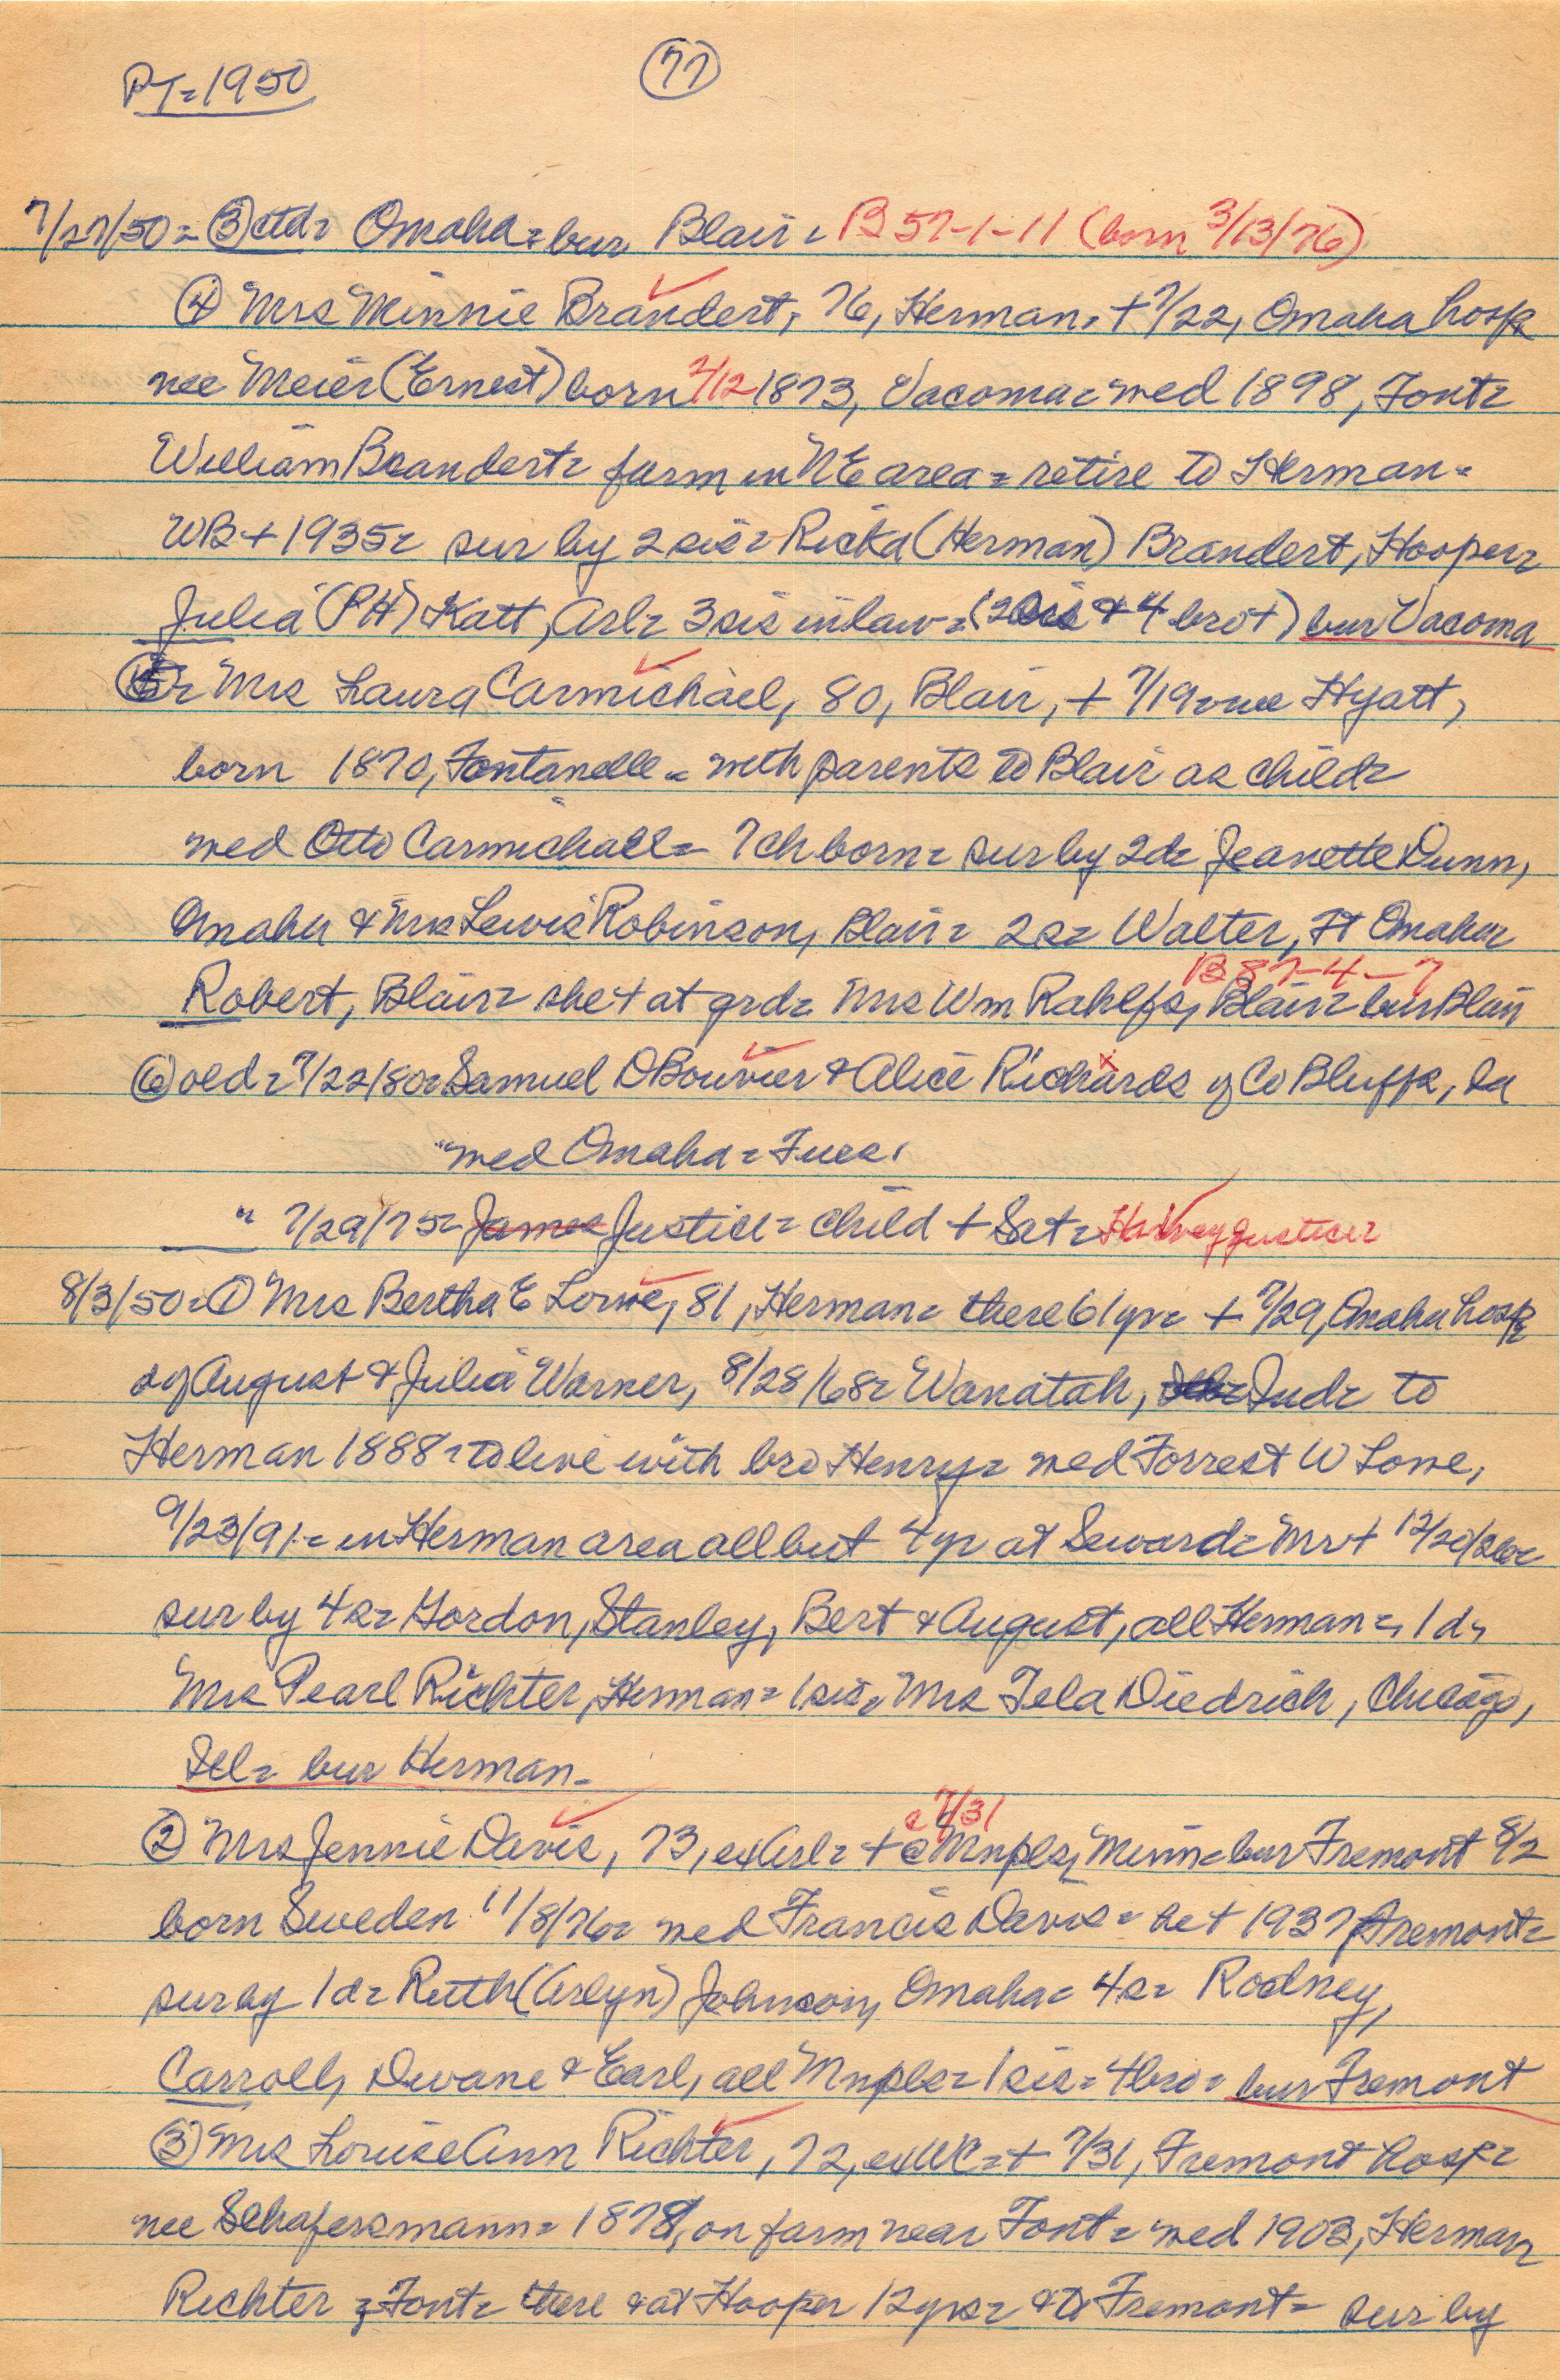 PT=1950
(77)
7/27/50= (3) ctd= Omaha= bur Blair= B 57-1-11 (born 3/13/76)
(4) Mrs Minnie Brandert, 76, Herman, + 7/22, Omaha hosp
nee Meier (Ernest) born 2/12 1873, Vacoma= med 1898, Font=
William Brandert= farm in NE area= retire to Herman=
WB + 1935= sur by 2 sis= Ricka (Herman) Brandert, Hooper=
Julia (PH) Katt, Arl= 3 sis in law= (2 sis & 4 bro +) bur Vacoma
(5)= Mrs Laura Carmichael, 80, Blair, + 7/19= nee Hyatt,
born 1870, Fontanelle= with parents to Blair as child=
med Otto Carmichall= 7 ch born= sur by 2d= Jeanette Dunn,
Omaha & Mrs Lewis Robinson, Blair= 2s= Walter, Ft Omaha=
B 87-4-7
Robert, Blair= she + at grd= Mrs Wm Rahlfs, Blair= bur Blair
(6) old= 7/22/80= Samuel D Bouvier & Alice Richards of Co Bluffs, Ia
med Omaha= Tues.
" 7/29/75= James Justice= child + Sat= Harvey Justice=
8/3/50= (1) Mrs Bertha E Lowe, 81, Herman= there 61 yr= + 7/29, Omaha hosp=
d of August & Julia Warner, 8/28/68= Wanatah, Ind= to
Herman 1888= to live with bro Henry= med Forrest W Lowe,
9/23/91= in Herman area all but 4 yr at Seward= Mr + 12/20/26=
sur by 4s= Gordon, Stanley, Bert & August, all Herman=, 1d,
Mrs Pearl Richter, Herman= 1 sis= Mrs Tela Diedrich, Chicago,
Ill= bur Herman=
c 7/31
(2) Mrs Jennie Davis, 73, ex Arl= + c Mnpls, Minn= bur Fremont 8/2
born Sweden 11/8/76= med Francis Davis= he + 1937 Fremont=
sur by 1d= Ruth (Arlyn) Johnson, Omaha= 4s= Rodney,
Carroll, Dwane & Earl, all Mnpls= 1 sis= 4 bro= bur Fremont
(3) Mrs Louise Ann Richter, 72, ex WC= + 7/31, Fremont hosp=
nee Schafersmann= 1878, on farm near Font= med 1903, Herman
Richter of Font= there & at Hooper 12 yrs= & to Fremont= sur by